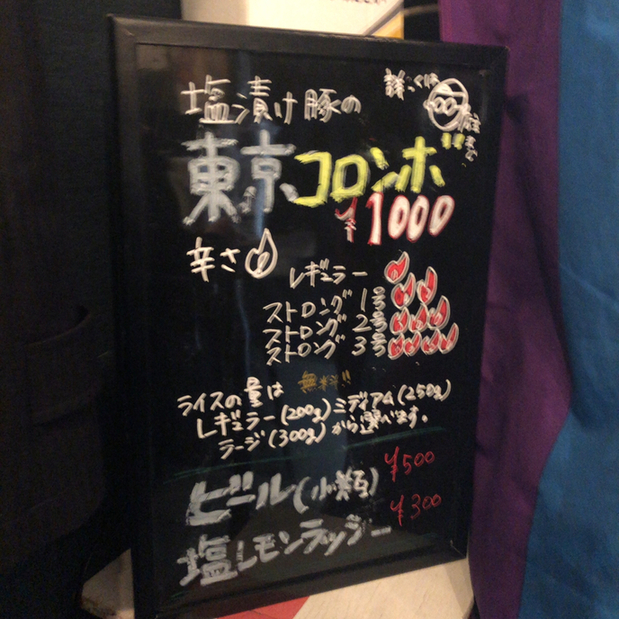 塩漬け豚の
詳しくは
東京コロンボ
¥1000
辛さ
レギュラー
ストロング1号
ストロング2号
ストロング3号
ライスの量は 無料!!
レギュラー(200g)ミディアム(250g)
ラージ(300g)から選べます。
ビール(小瓶) ¥500
塩レモンラッシー ¥300